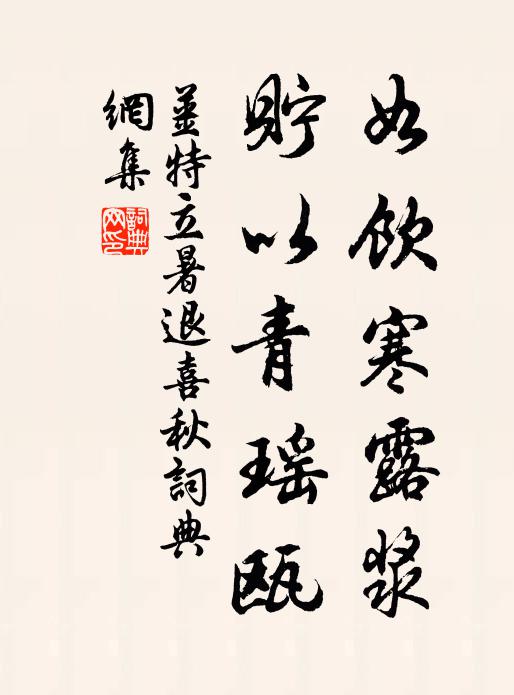 如飲寒露漿
貯以青瑶甌
姜特立暑退喜秋詞典
網集
詞典
网印